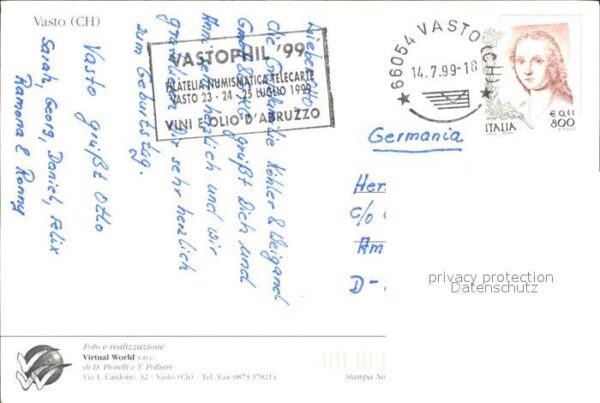 Vasto (CH)
VASTOPHIL '99
FILATELIA NUMISMATICA TELECARTE
VASTO 23 - 24 - 25 LUGLIO 1999
VINI E OLIO D'ABRUZZO
66054 VASTO (CH)
14.7.99-18
ITALIA
€ 0,41
800
Lieber Otto
die Familie Köhler & Weigand
grüßt Dich und
herzlich und wir
gratulieren Dir sehr herzlich
zum Geburtstag.
Vasto grüßt Otto
Sarah, Georg, Daniel, Felix
Ramona & Ronny
Germania
Her
c/o
Am
D-
privacy protection
Datenschutz
Foto e realizzazione
Virtual World s.n.c.
di D. Piorelli e T. Pollutri
Via L. Cardone, 32 - Vasto (Ch) - Tel./Fax 0873 378214
Stampa